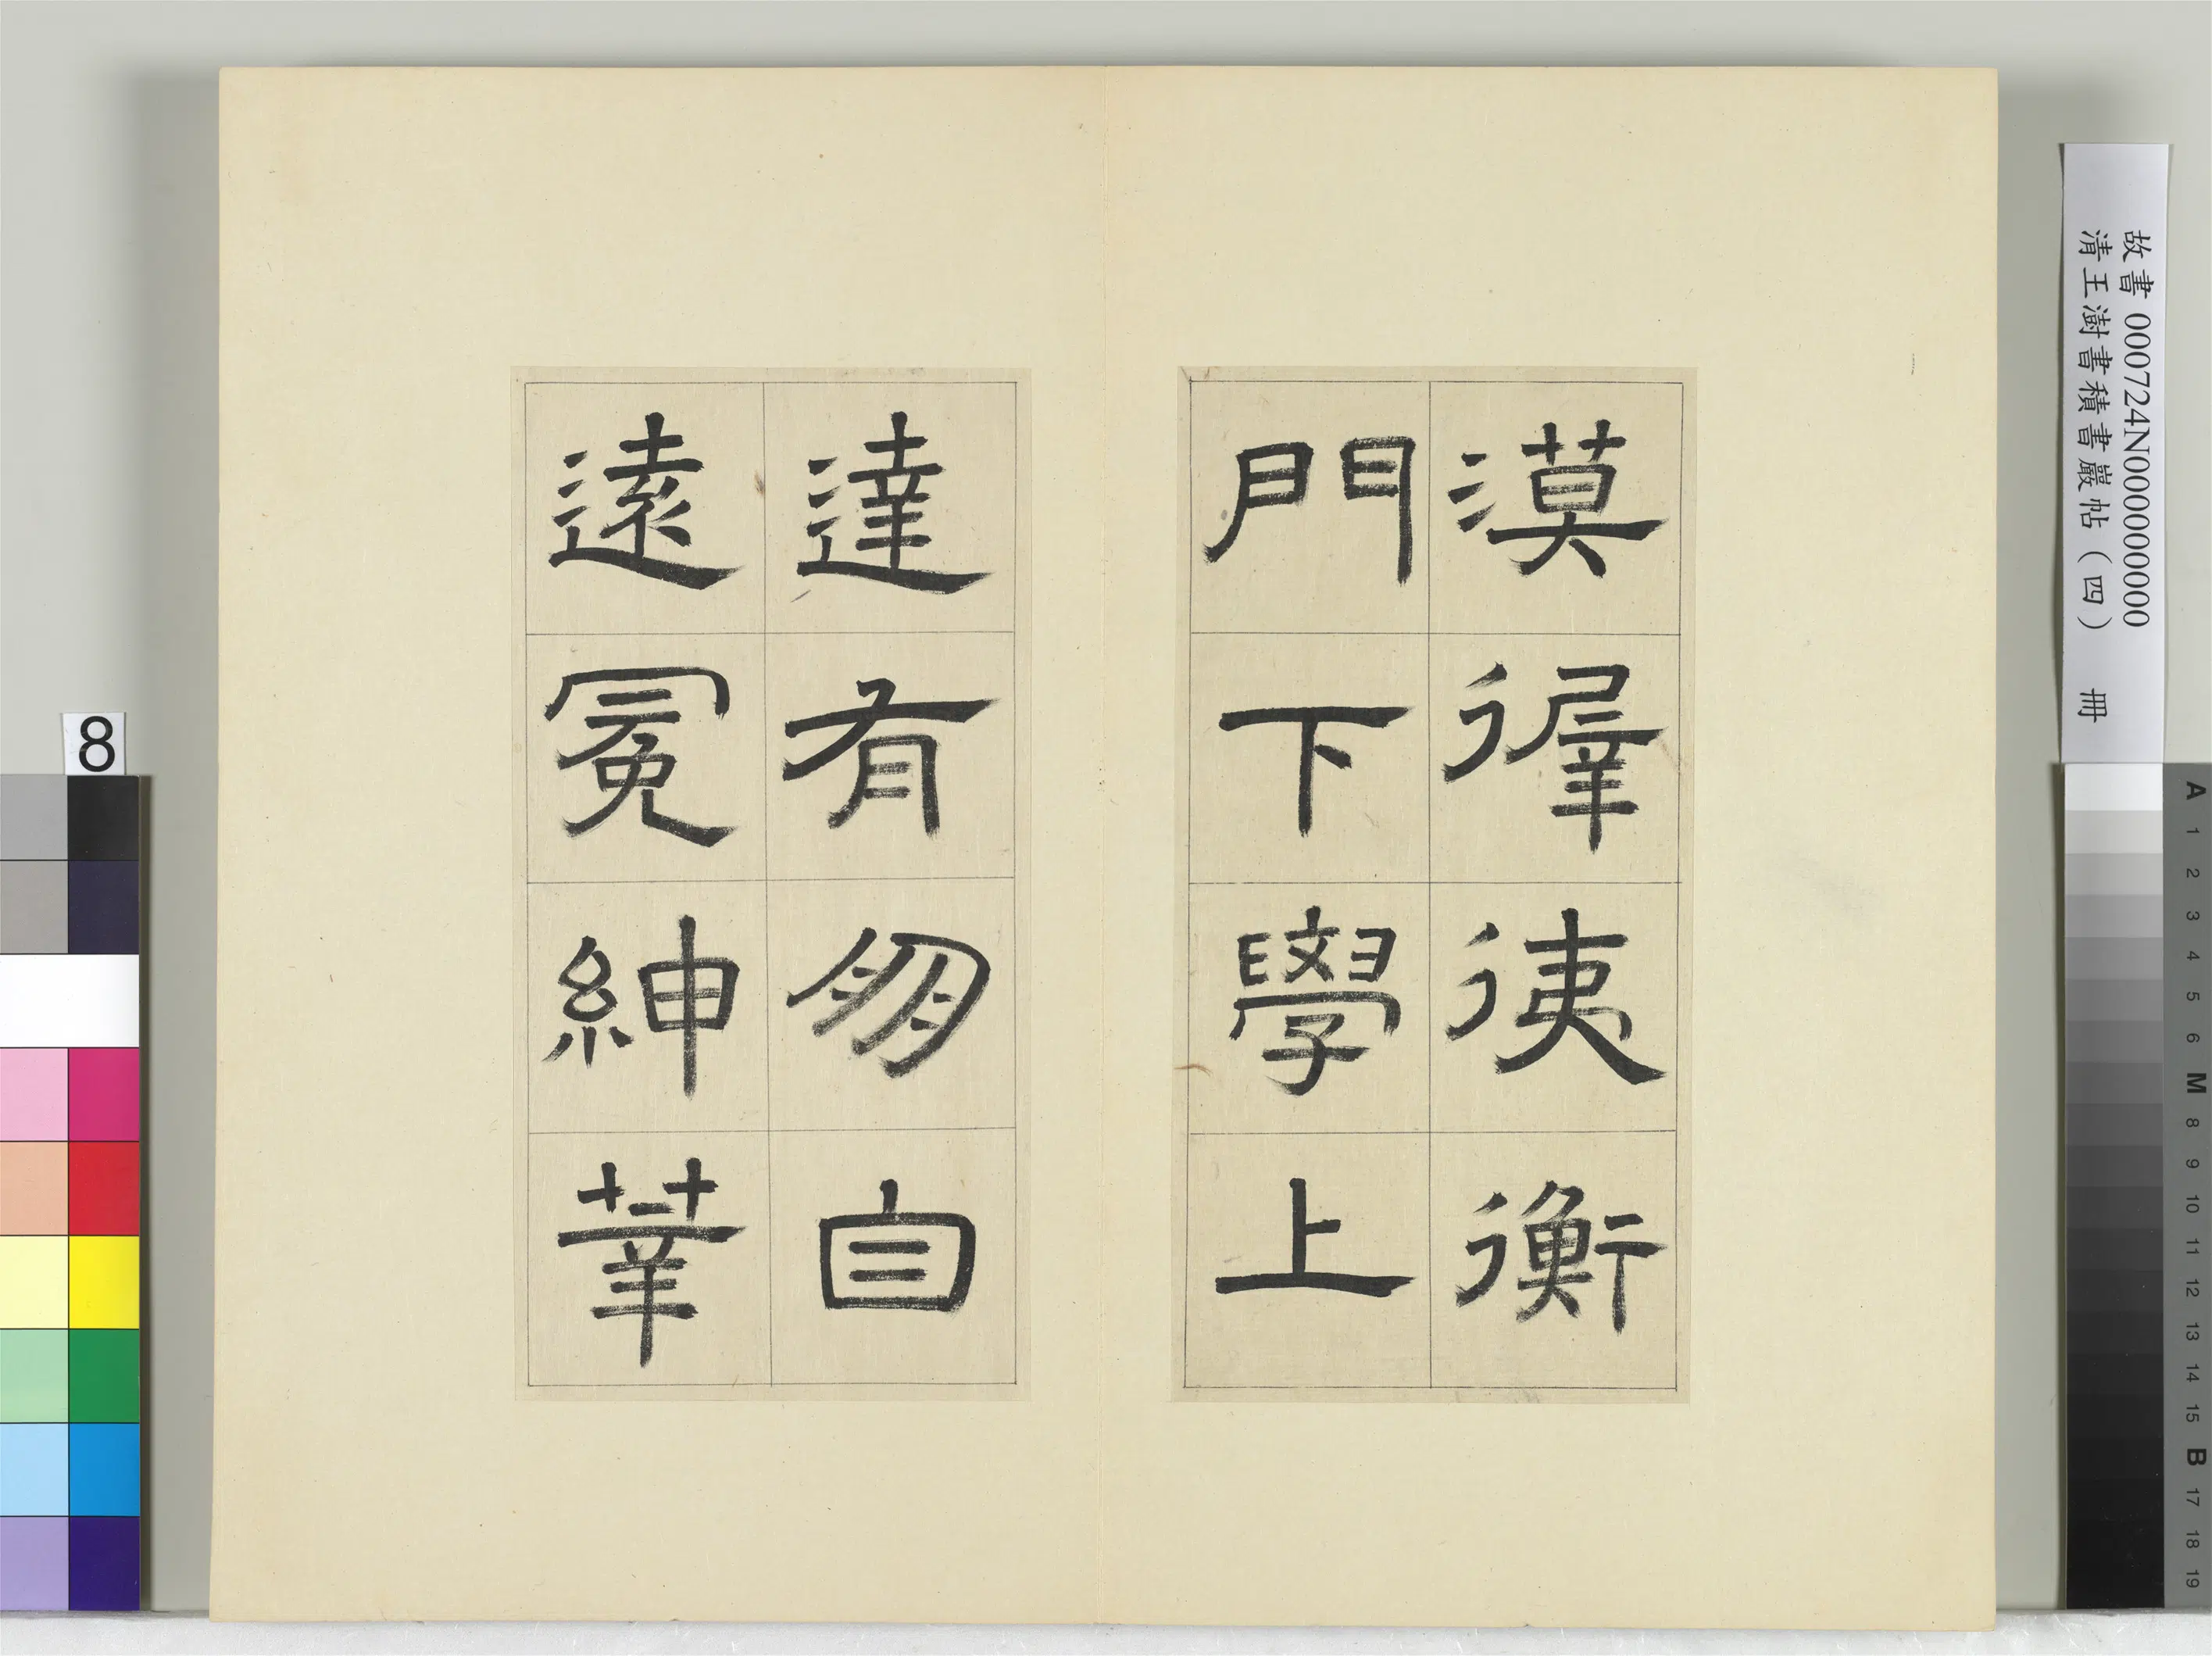 漠徲𢓡衡
門下學上
達有朋自
遠冕紳莘
故書 000724N000000000
清王澍書積書巖帖（四） 冊
8
A 1 2 3 4 5 6 M 8 9 10 11 12 13 14 15 B 17 18 19